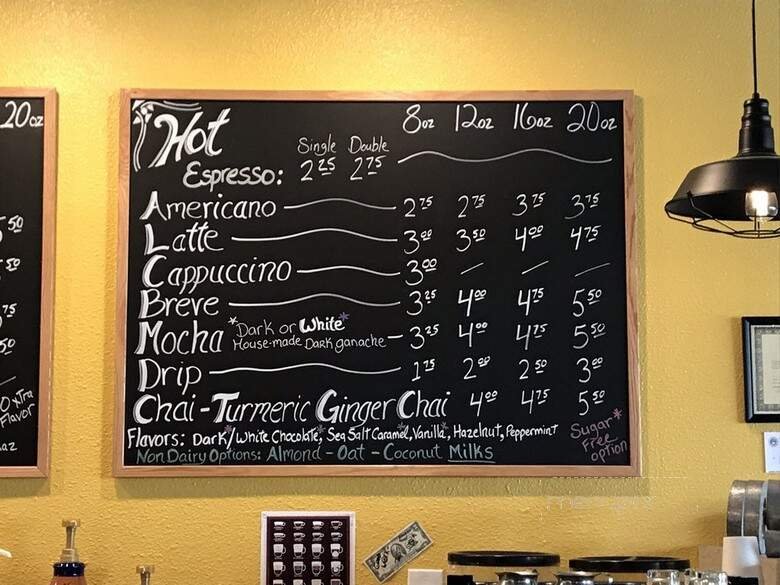 20oz
Hot 8oz 12oz 16oz 20oz
Single Double
Espresso: 2 25 2 75
Americano 2 75 2 75 3 75 3 75
Latte 3 00 3 50 4 00 4 75
Cappuccino 3 00
Breve 3 25 4 00 4 75 5 50
Mocha *Dark or White* 3 25 4 00 4 75 5 50
House-made Dark ganache
Drip 1 75 2 00 2 50 3 00
Chai-Turmeric Ginger Chai 4 00 4 75 5 50
Flavors: Dark/White Chocolate*, Sea Salt Caramel, Vanilla*, Hazelnut, Peppermint
Sugar*
Free
option
Non Dairy Options: Almond - Oat - Coconut Milks
50
50
75
50
xtra
Flavor